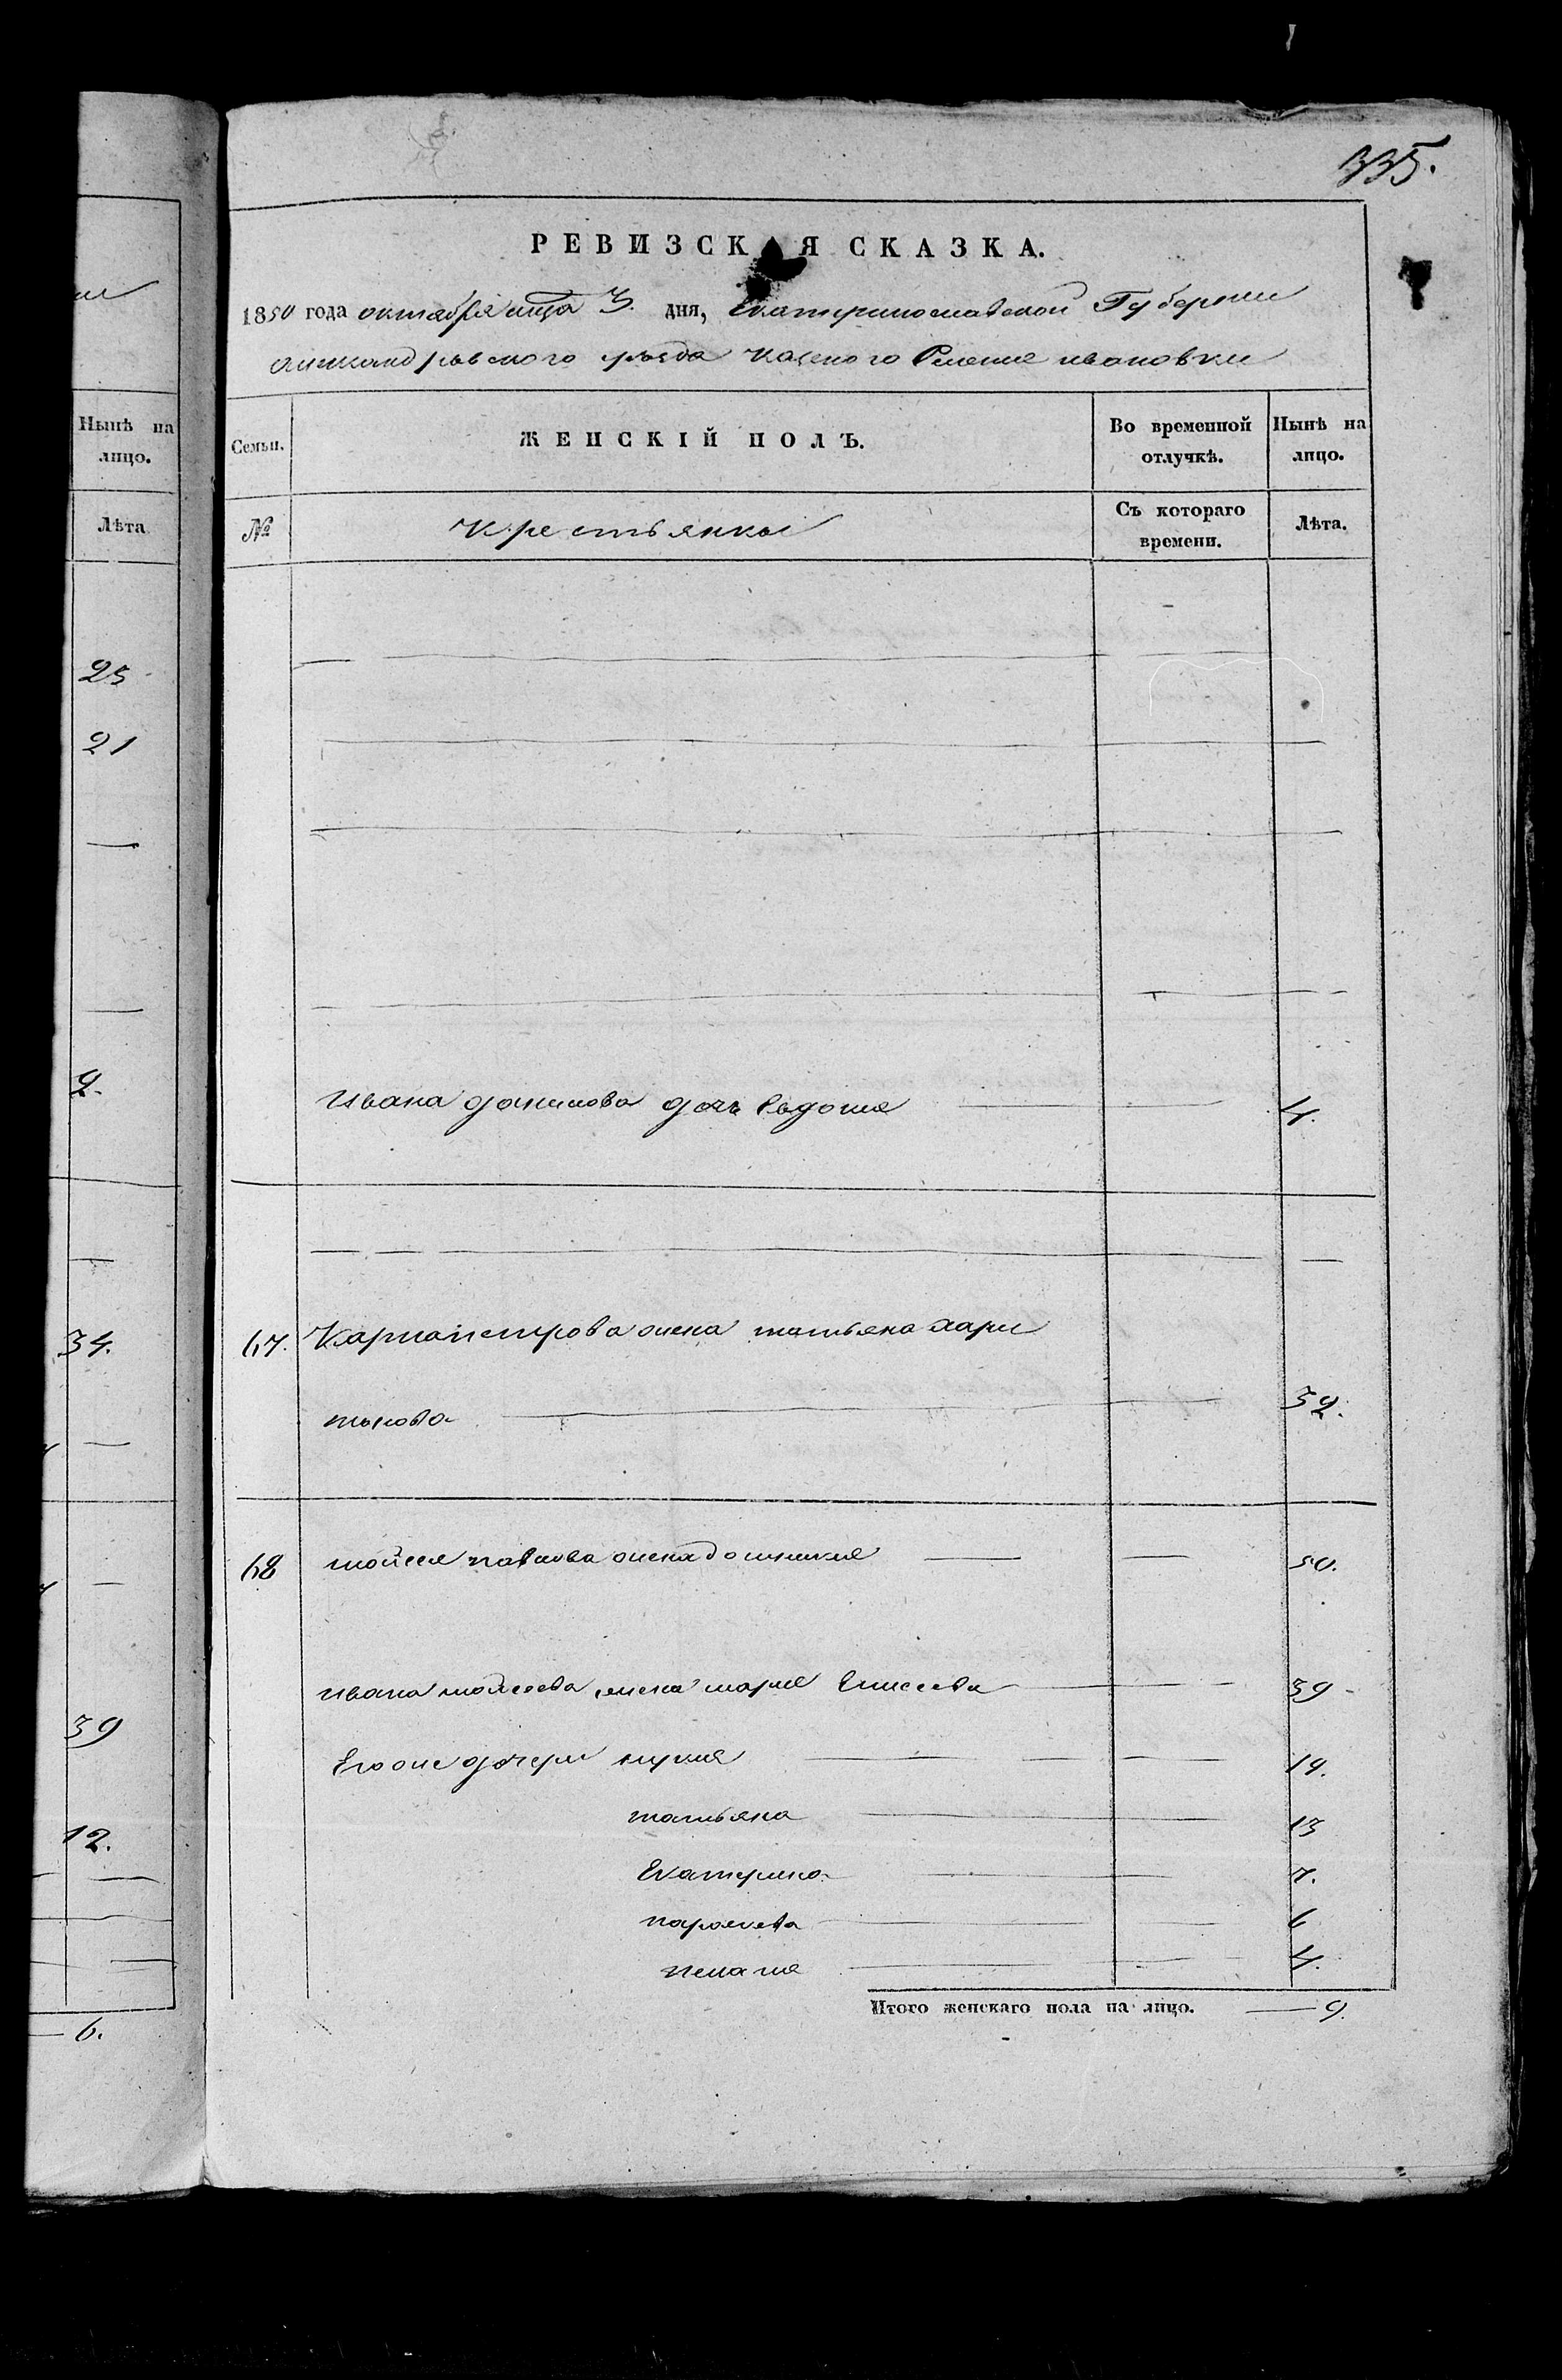 ни
Нынѣ на
лицо.
Лѣта
25
21
2.
34.
39
12.
6.
335.
РЕВИЗСКАЯ СКАЗКА.
1850 года октября мца 3. дня, Екатеринославской Губернии
александровского уезда казеного Селения ивановки
Семьи. ЖЕНСКІЙ ПОЛЪ. Во временной отлучкѣ. Нынѣ на лицо.
№ Крестьянки Съ котораго времени. Лѣта.
Ивана данилова дочь Евдокия 4.
67. Карпа петрова жена татьяна хари
тонова 32.
68 мойсея павлова жена домникия 50.
ивана мойсеева жена мария Елисеева 39
Его же дочери 19.
татьяна 13
Екатерина 7.
параскева 6
пелагия 4.
Итого женскаго пола на лицо. 9.